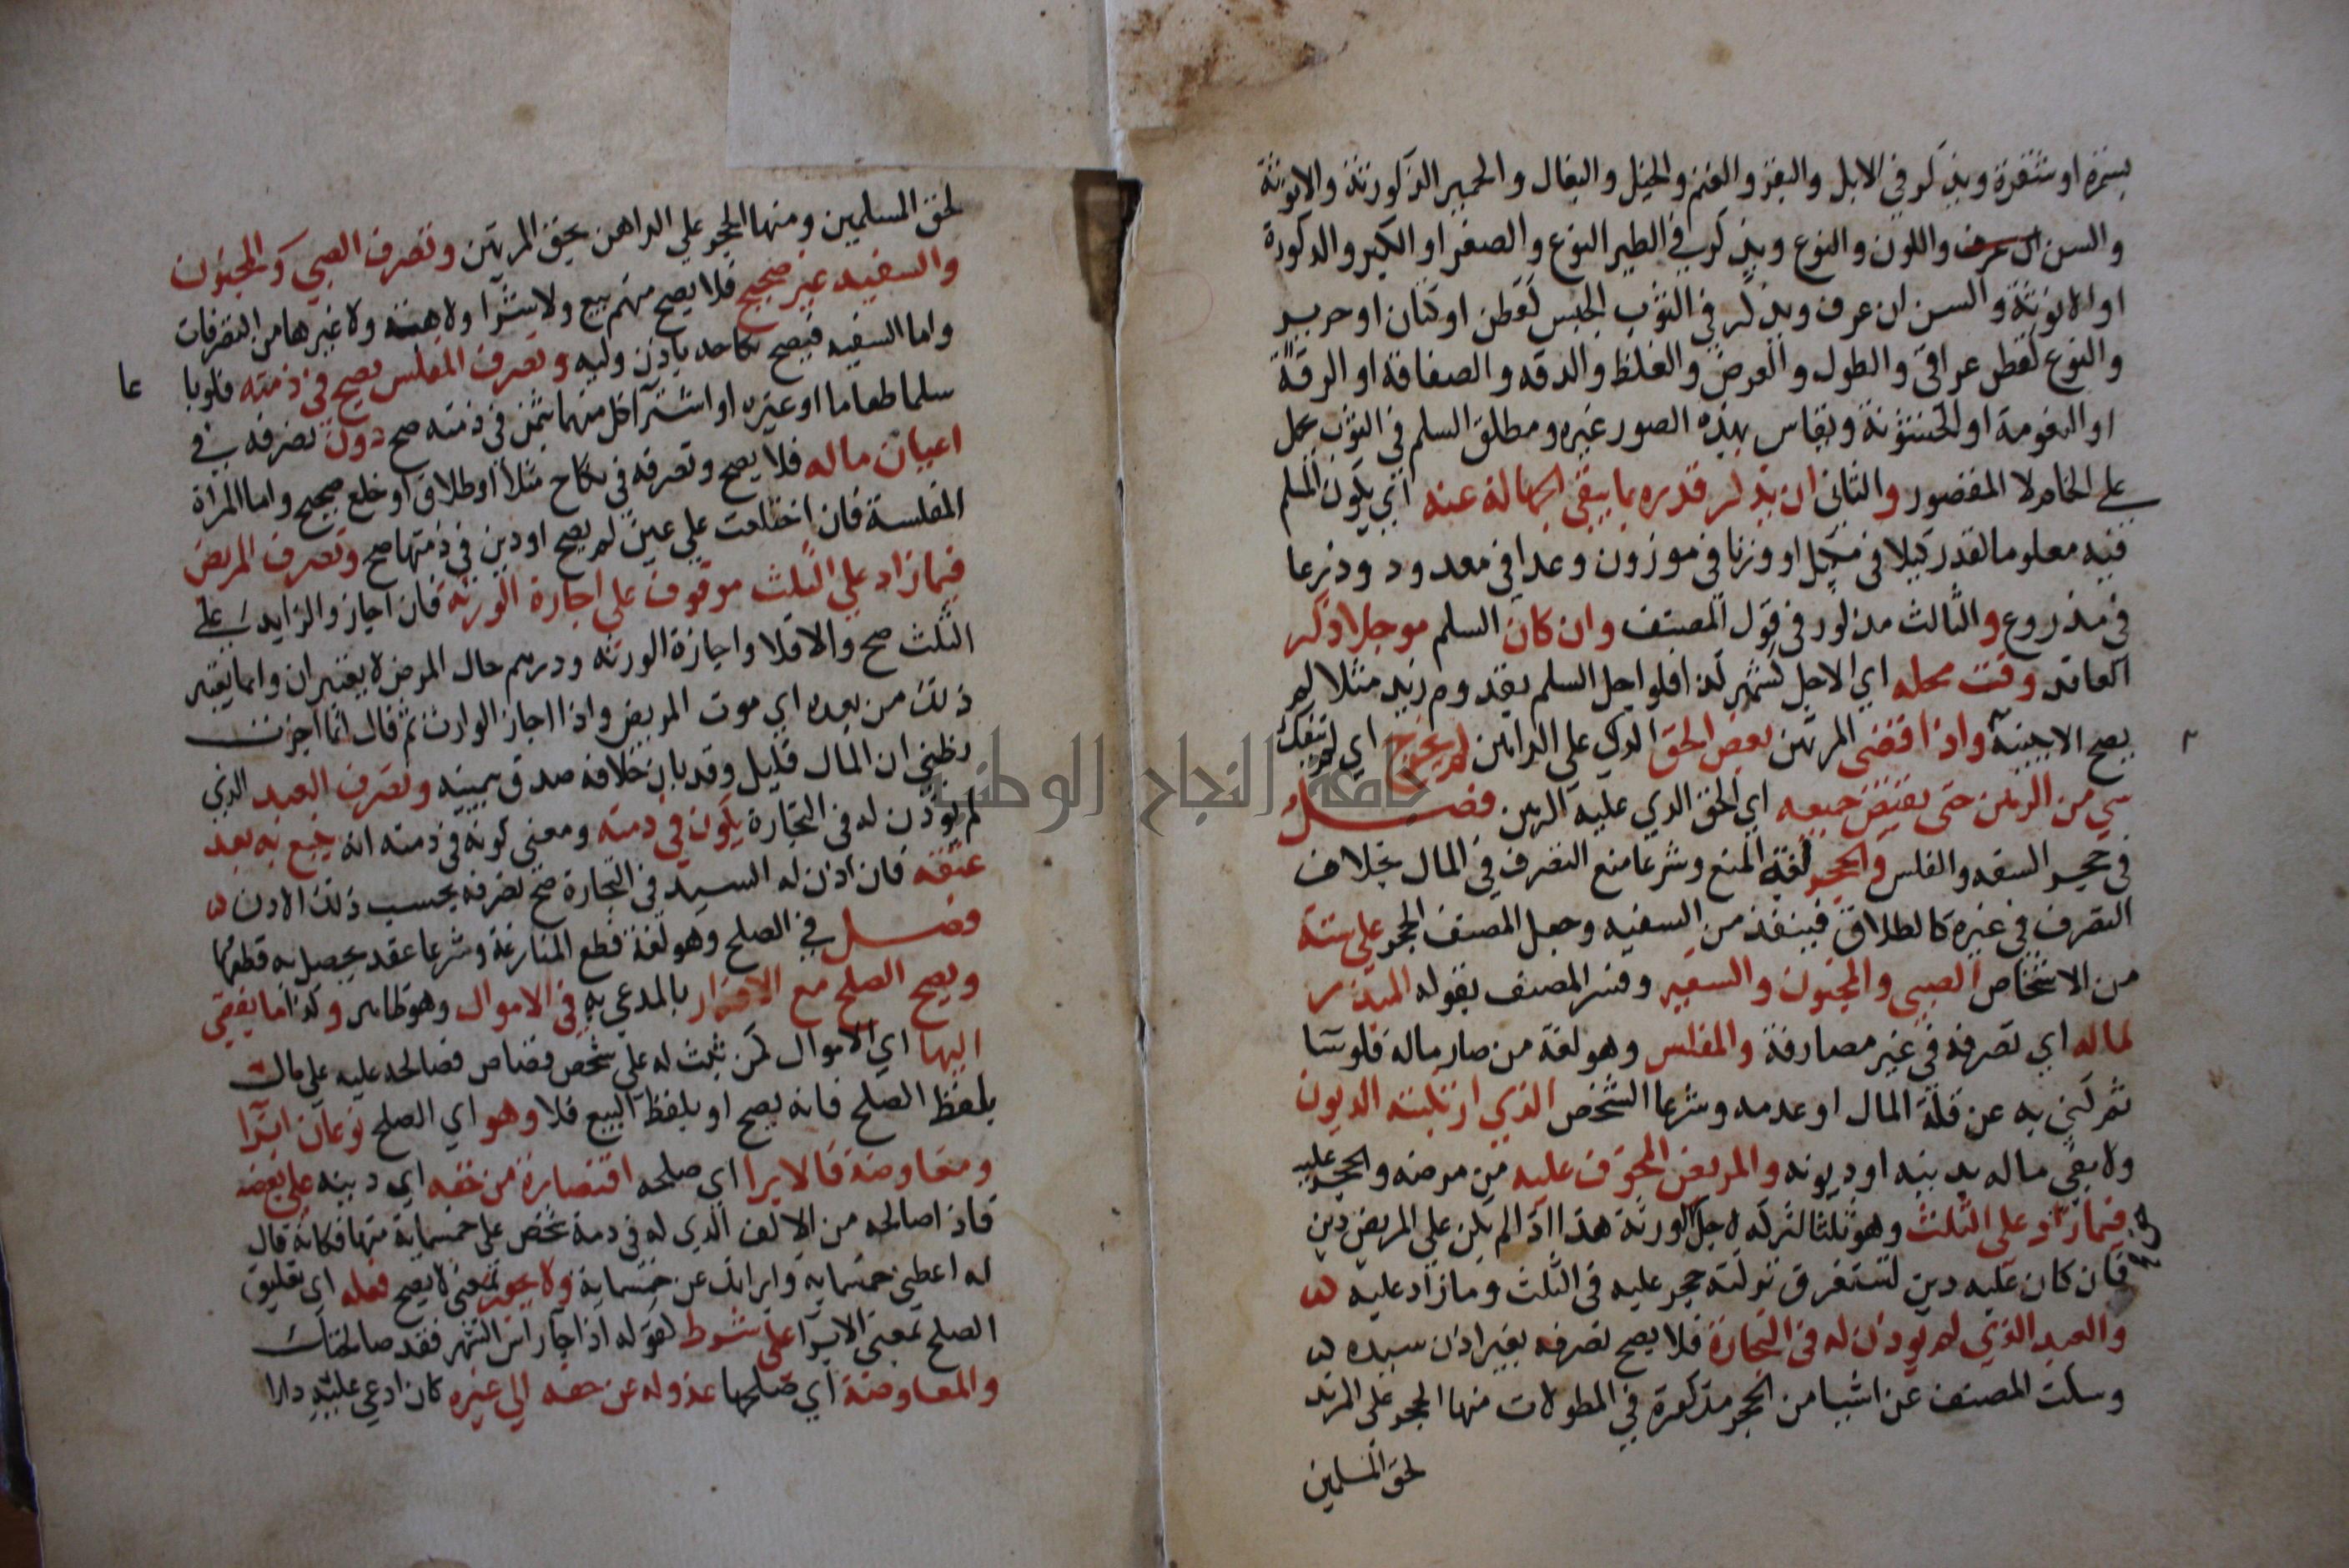 بسمرة او شقرة ويذكر في الابل والبقر والغنم والخيل والبغال والحمير الذكورة والانوثة
والسن ان عرف واللون والنوع ويذكر في الطير النوع والصغر او الكبر والذكورة
او الانوثة والسن ان عرف ويذكر في الثوب الجنس كقطن او كتان او حرير
والنوع كقطن عراقي والطول والعرض والغلظ والدقة والصفاقة او الرقة
او النعومة او الخشونة ويقاس بهذه الصور غيره ومطلق السلم في الثوب يحمل
على الخام لا المقصور والثاني ان يذكر قدره بما ينفي الجهالة عنه اي يكون المسلم
فيه معلوم القدر كيلا في مكيل او وزنا في موزون وعدا في معدود وذرعا
في مذروع والثالث مذكور في قول المصنف وان كان السلم موجلا ذكر
العاقد وقت محله اي الاجل كشهر كذا فلو اجل السلم بقدوم زيد مثلا لم
يصح الا ببينة واذا قضى المرتهن بعض الحق الذي على الراهن لم يخرج اي لم ينفك
شي من الرهن حتى يقبض جميعه اي الحق الذي عليه الرهن فصل
في حجر السفه والفلس والحجر لغة المنع وشرعا منع التصرف في المال بخلاف
التصرف في غيره كالطلاق فينفذ من السفيه وجعل المصنف الحجر على ستة
من الاشخاص الصبي والمجنون والسفيه وفسر المصنف بقوله المبذر
لماله اي تصرفه في غير مصارفة والمفلس وهو لغة من صار ماله فلوسا
ثم كني به عن قلة المال او عدمه وشرعا الشخص الذي ارتكبته الديون
ولا يفي ماله بدينه او ديونه والمريض المخوف عليه من مرضه والحجر عليه
فيما زاد على الثلث وهو ثلثا التركة لاجل الورثة هذا اذا لم يكن على المريض دين
فان كان عليه دين تستغرق تركته حجر عليه في الثلث وما زاد عليه
والعبد الذي لم يوذن له في التجارة فلا يصح تصرفه بغير اذن سيده
وسكت المصنف عن اشيا من الحجر مذكورة في المطولات منها الحجر على المرتد
لحق المسلمين
لحق المسلمين ومنها الحجر على الراهن بحق المرتهن وتصرف الصبي والمجنون
والسفيه غير صحيح فلا يصح منهم بيع ولا شرا ولا هبة ولا غيرها من التصرفات
واما السفيه فيصح نكاحه باذن وليه وتصرف المفلس يصح في ذمته فلو باع
سلما طعاما او غيره او اشترا كل منهما بثمن في ذمته صح دون تصرفه في
اعيان ماله فلا يصح وتصرفه في نكاح مثلا او طلاق او خلع صحيح واما المراة
المفلسة فان اختلعت على عين لم يصح او دين في ذمتها صح وتصرف المريض
فيما زاد على الثلث موقوف على اجازة الورثة فان اجازوا الزايد على
الثلث صح والا فلا واجازة الورثة وردهم حال المرض لا يعتبران وانما يعتبر
ذلك من بعده اي موت المريض واذا اجاز الوارث ثم قال انما اجزت
بظني ان المال قليل وقد بان خلافه صدق بيمينه وتصرف العبد الذي
لم يوذن له في التجارة يكون في ذمته ومعنى كونه في ذمته انه يتبع به بعد
عتقه فان اذن له السيد في التجارة صح تصرفه بحسب ذلك الاذن
فصل في الصلح وهو لغة قطع المنازعة وشرعا عقد يحصل به قطعها
ويصح الصلح مع الاقرار بالمدعي به في الاموال وهو ظاهر وكذا ما يفضي
اليها اي الاموال كمن ثبت له على شخص قصاص فصالحه عليه على مال
بلفظ الصلح فانه يصح او بلفظ البيع فلا وهو اي الصلح نوعان ابرا
ومعاوضة فالابرا اي صلحه اقتصاره من حقه اي دينه على بعضه
فاذا صالحه من الالف الذي له في ذمة شخص على خمسماية منها فكانه قال
له اعطني خمسماية وابراتك عن خمسماية ولا يجوز بمعنى لا يصح فعله اي تعليق
الصلح بمعنى الابرا على شرط كقوله اذا جا راس الشهر فقد صالحتك
والمعاوضة اي صلحها عدوله عن حقه الي غيره كان ادعي عليه دارا
جامعة النجاح الوطنية